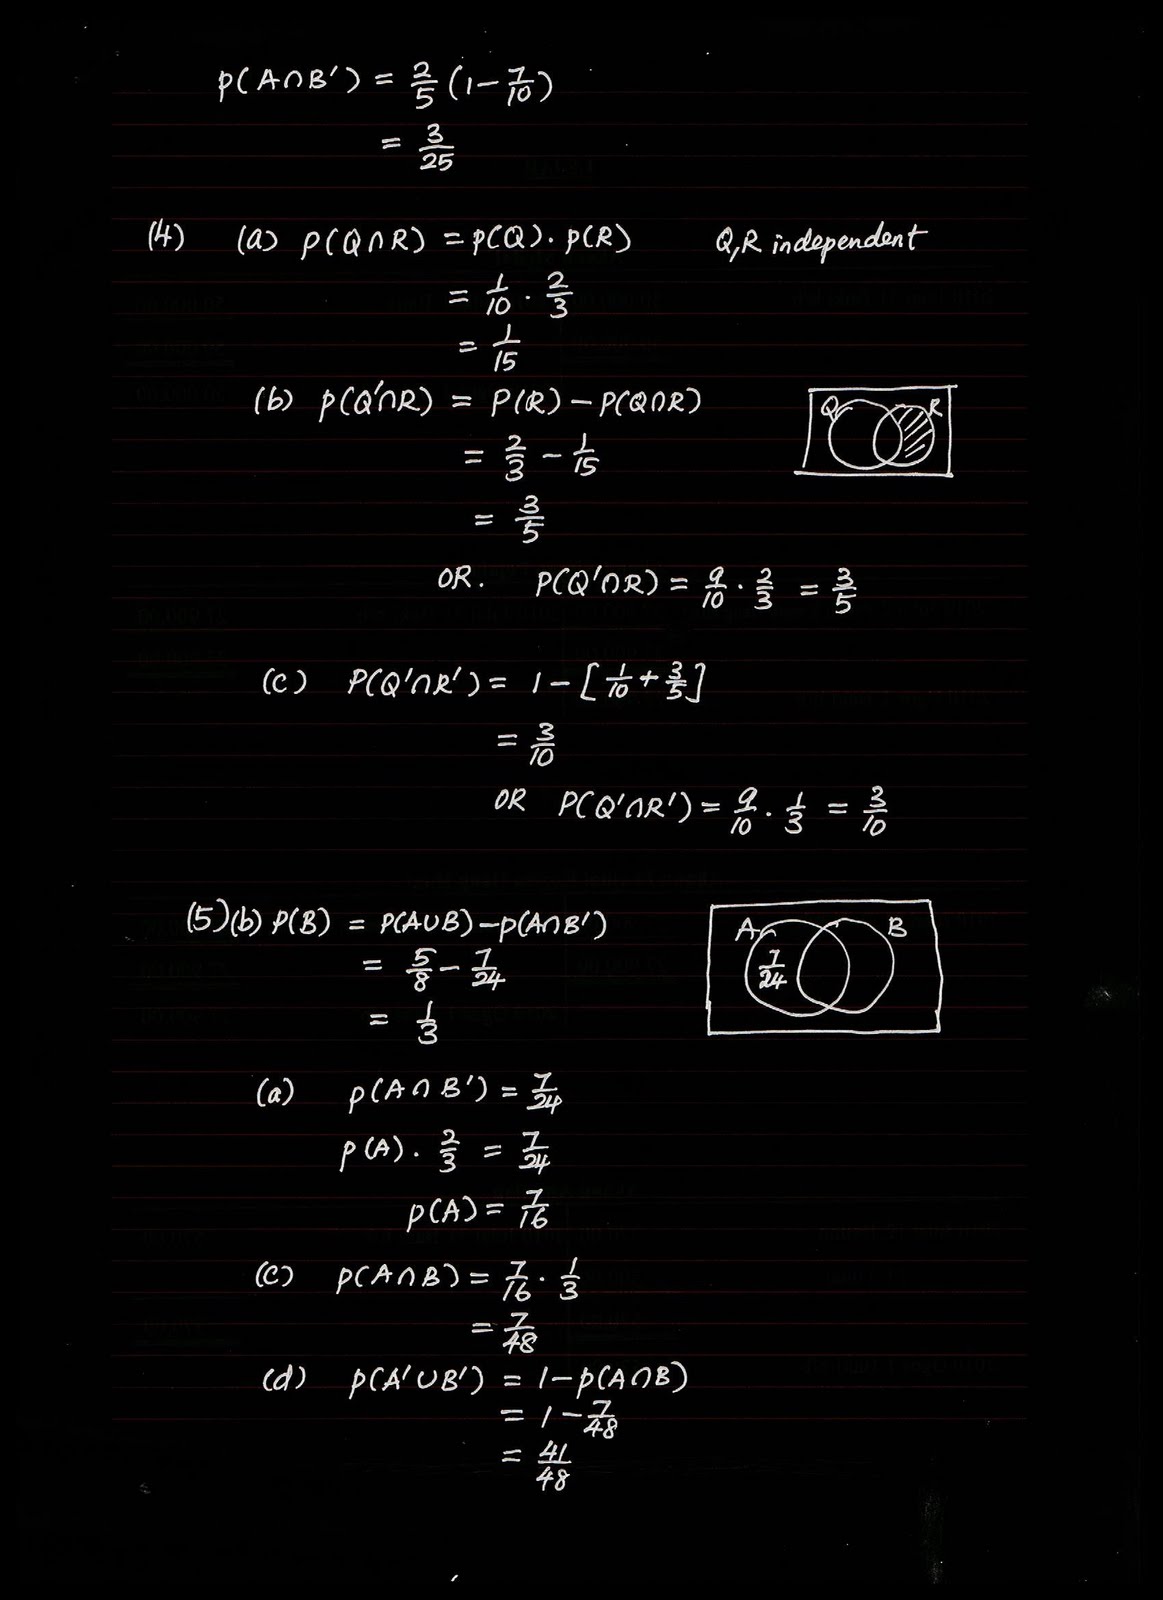 P(A∩B') = 2/5 (1 - 7/10)
= 3/25
(4) (a) P(Q∩R) = P(Q). P(R) Q,R independent
= 1/10 . 2/3
= 1/15
(b) P(Q'∩R) = P(R) - P(Q∩R)
Q R
= 2/3 - 1/15
= 3/5
OR. P(Q'∩R) = 9/10 . 2/3 = 3/5
(c) P(Q'∩R') = 1 - [1/10 + 3/5]
= 3/10
OR P(Q'∩R') = 9/10 . 1/3 = 3/10
(5)(b) P(B) = P(A∪B) - P(A∩B')
A B
7/24
= 5/8 - 7/24
= 1/3
(a) P(A∩B') = 7/24
P(A). 2/3 = 7/24
P(A) = 7/16
(c) P(A∩B) = 7/16 . 1/3
= 7/48
(d) P(A'∪B') = 1 - P(A∩B)
= 1 - 7/48
= 41/48